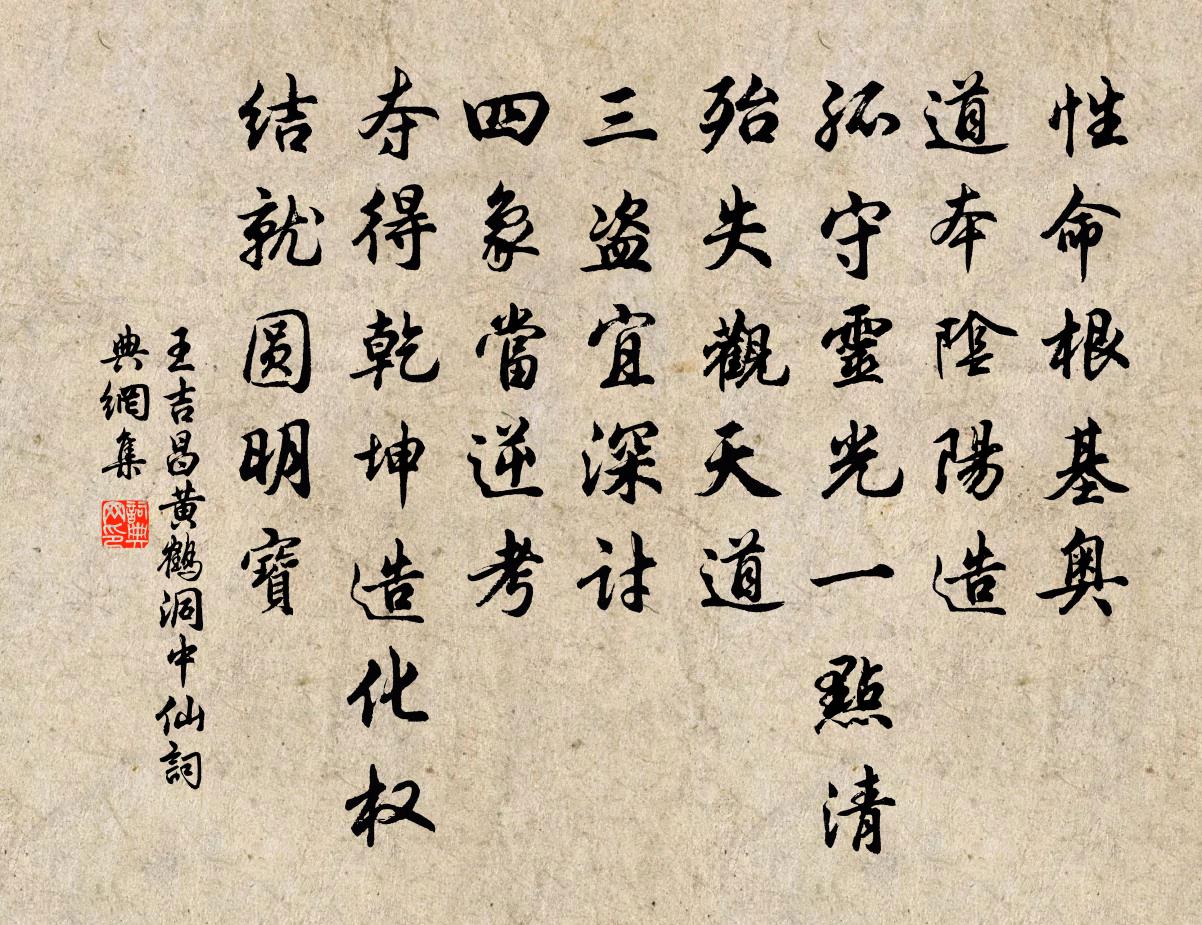 性命根基奥
道本陰陽造
孤守靈光一點清
殆失觀天道
三盗宜深討
四象當逆考
夺得乾坤造化权
结就圆明寶
王吉昌黄鹤洞中仙詞
典網集
詞典
网印